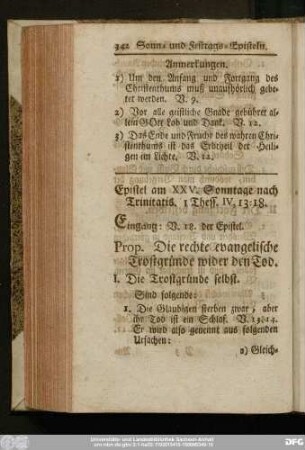 342 Sonn- und Festtags-Episteln.
Anmerkungen.
1) Um den Anfang und Fortgang des
Christenthums muß unaufhörlich gebe-
tet werden. V. 9.
2) Vor alle geistliche Gnade gebühret al-
lein GOtt Lob und Dank. V. 12.
3) Das Ende und Frucht des wahren Chri-
stenthums ist das Erbtheil der Heili-
gen im Lichte. V. 12.
Epistel am XXV. Sonntage nach
Trinitatis. 1 Thess. IV, 13-18.
Eingang: V. 18. der Epistel.
Prop. Die rechte evangelische
Trostgründe wider den Tod.
I. Die Trostgründe selbst.
Sind folgende:
1. Die Glaubigen sterben zwar, aber
ihr Tod ist ein Schlaf. V. 13.14.
Er wird also genennt aus folgenden
Ursachen:
a) Gleich-
Universitäts- und Landesbibliothek Sachsen-Anhalt